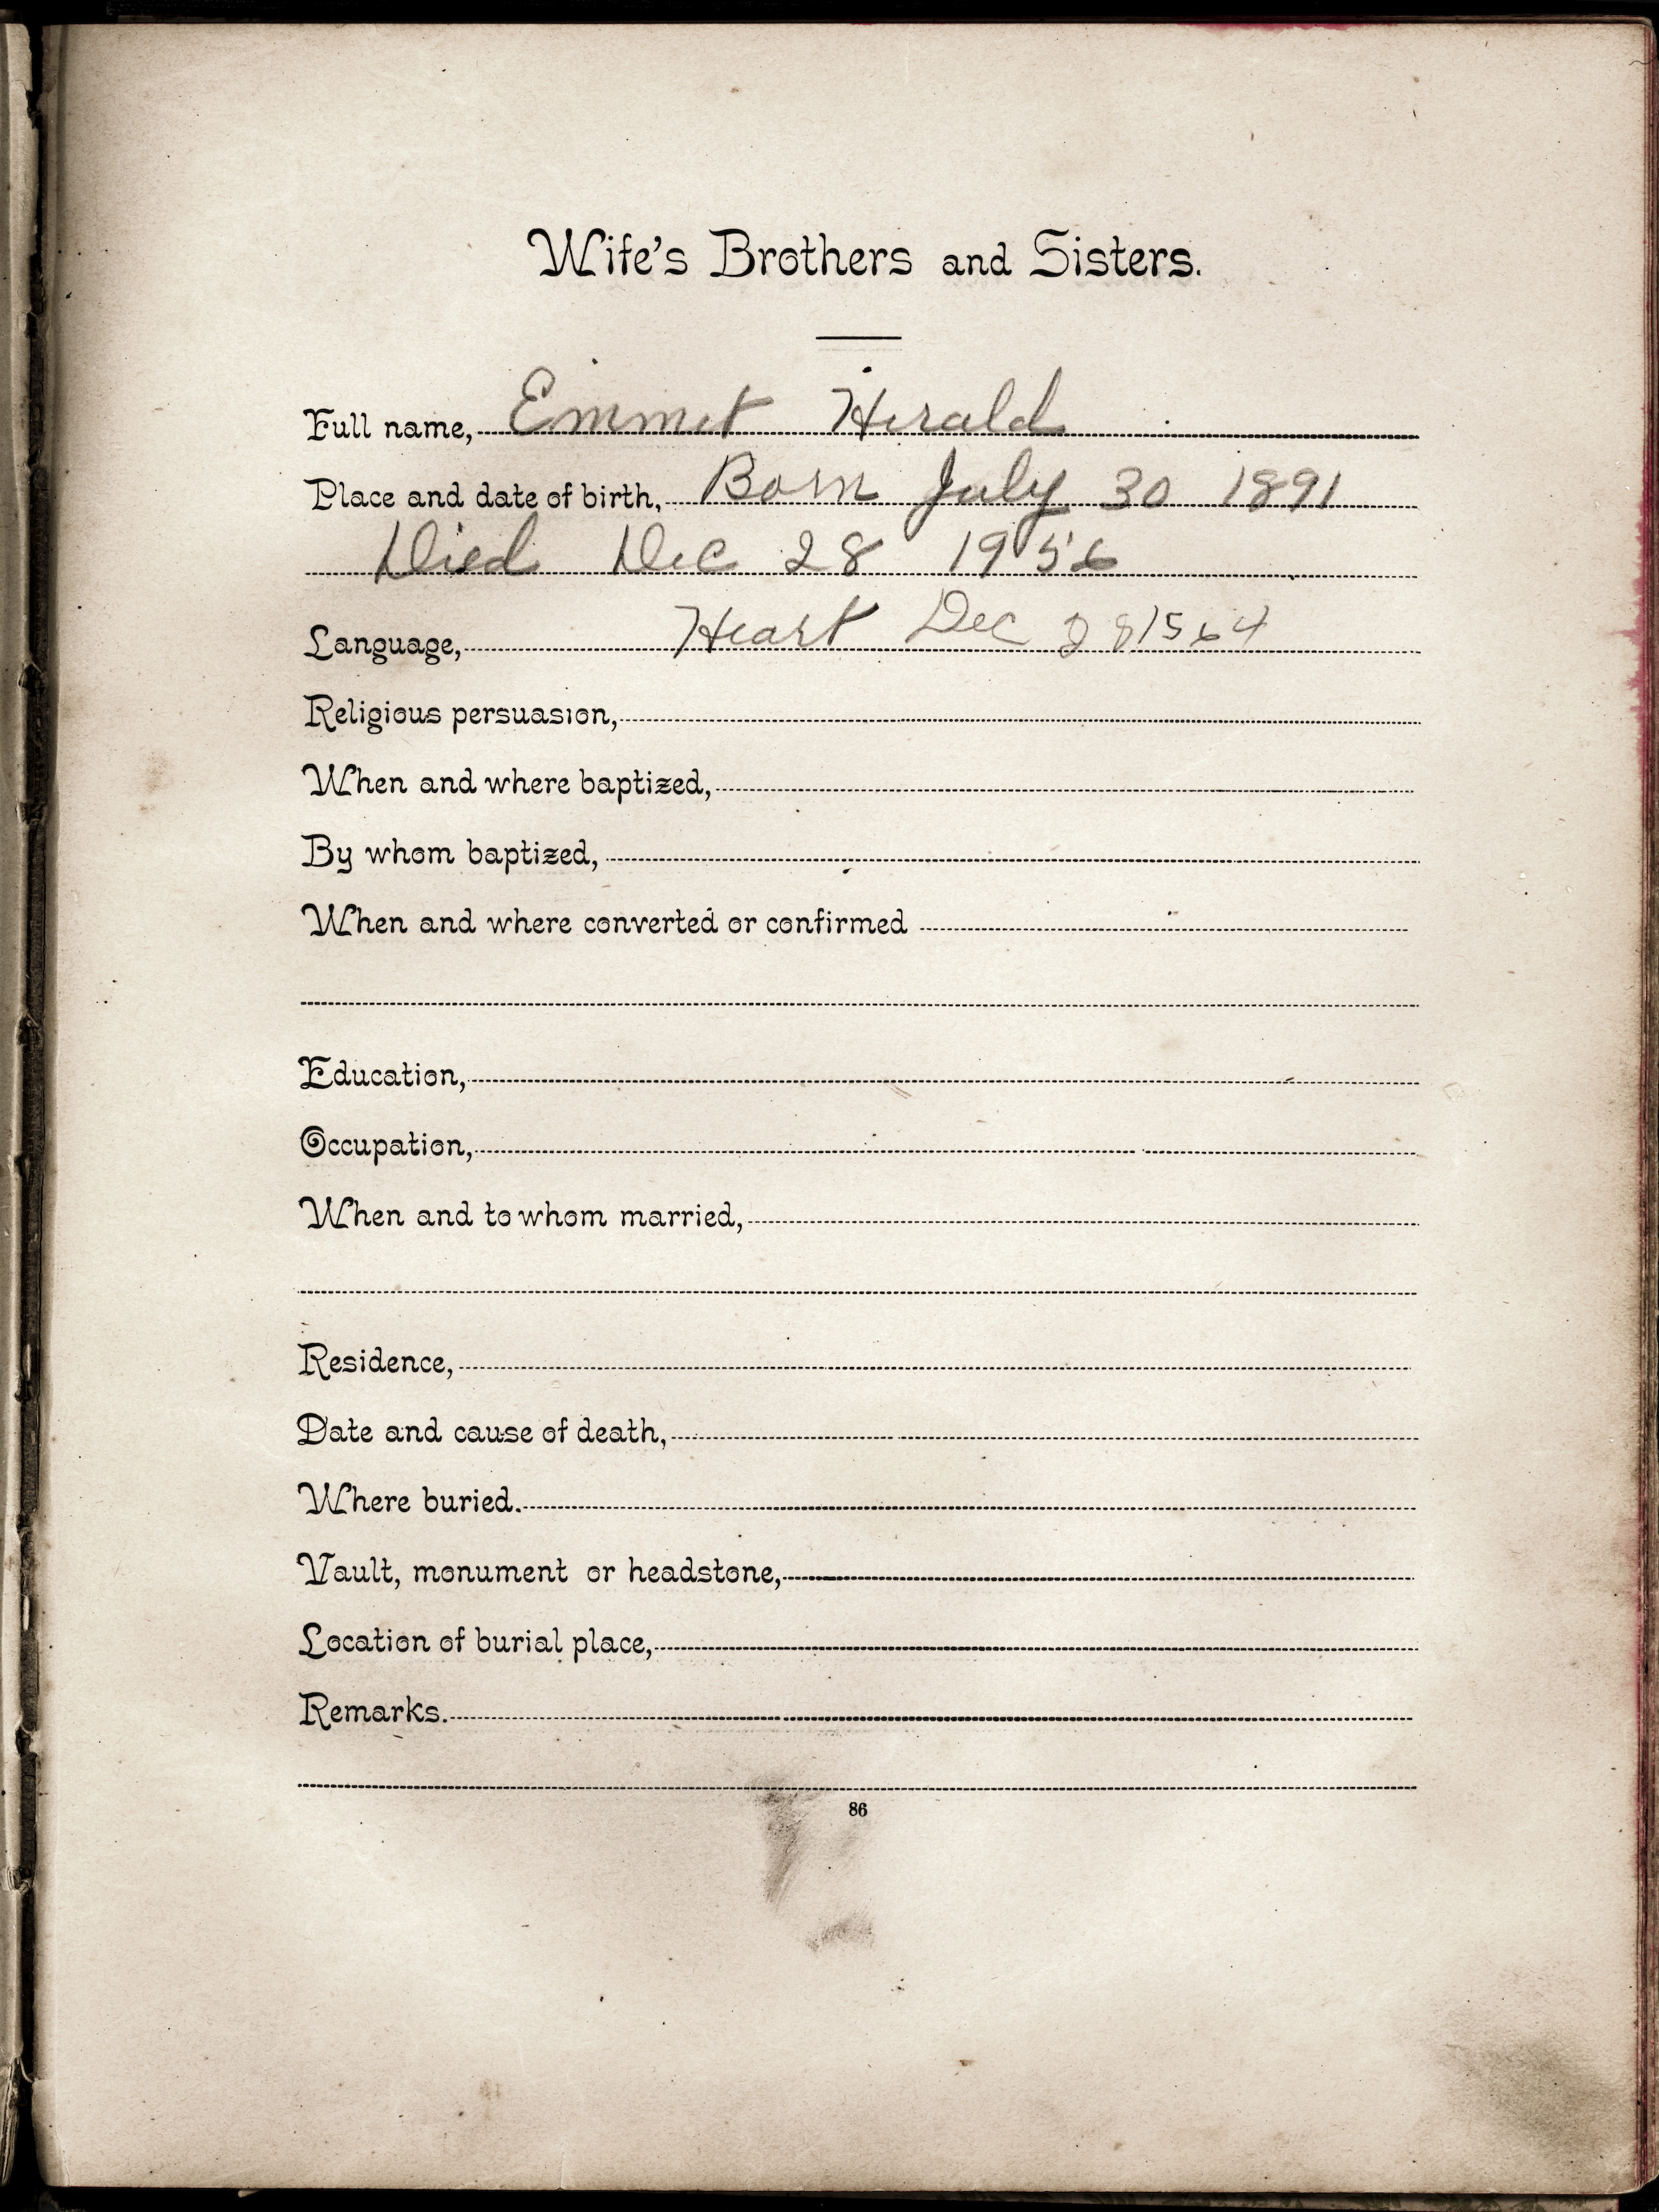 Wife's Brothers and Sisters.
Full name, Emmet Herald
Place and date of birth, Born July 30 1891
Died Dec 28 1956
Language, Heart Dec 28 1564
Religious persuasion,
When and where baptized,
By whom baptized,
When and where converted or confirmed
Education,
Occupation,
When and to whom married,
Residence,
Date and cause of death,
Where buried.
Vault, monument or headstone,
Location of burial place,
Remarks.
86